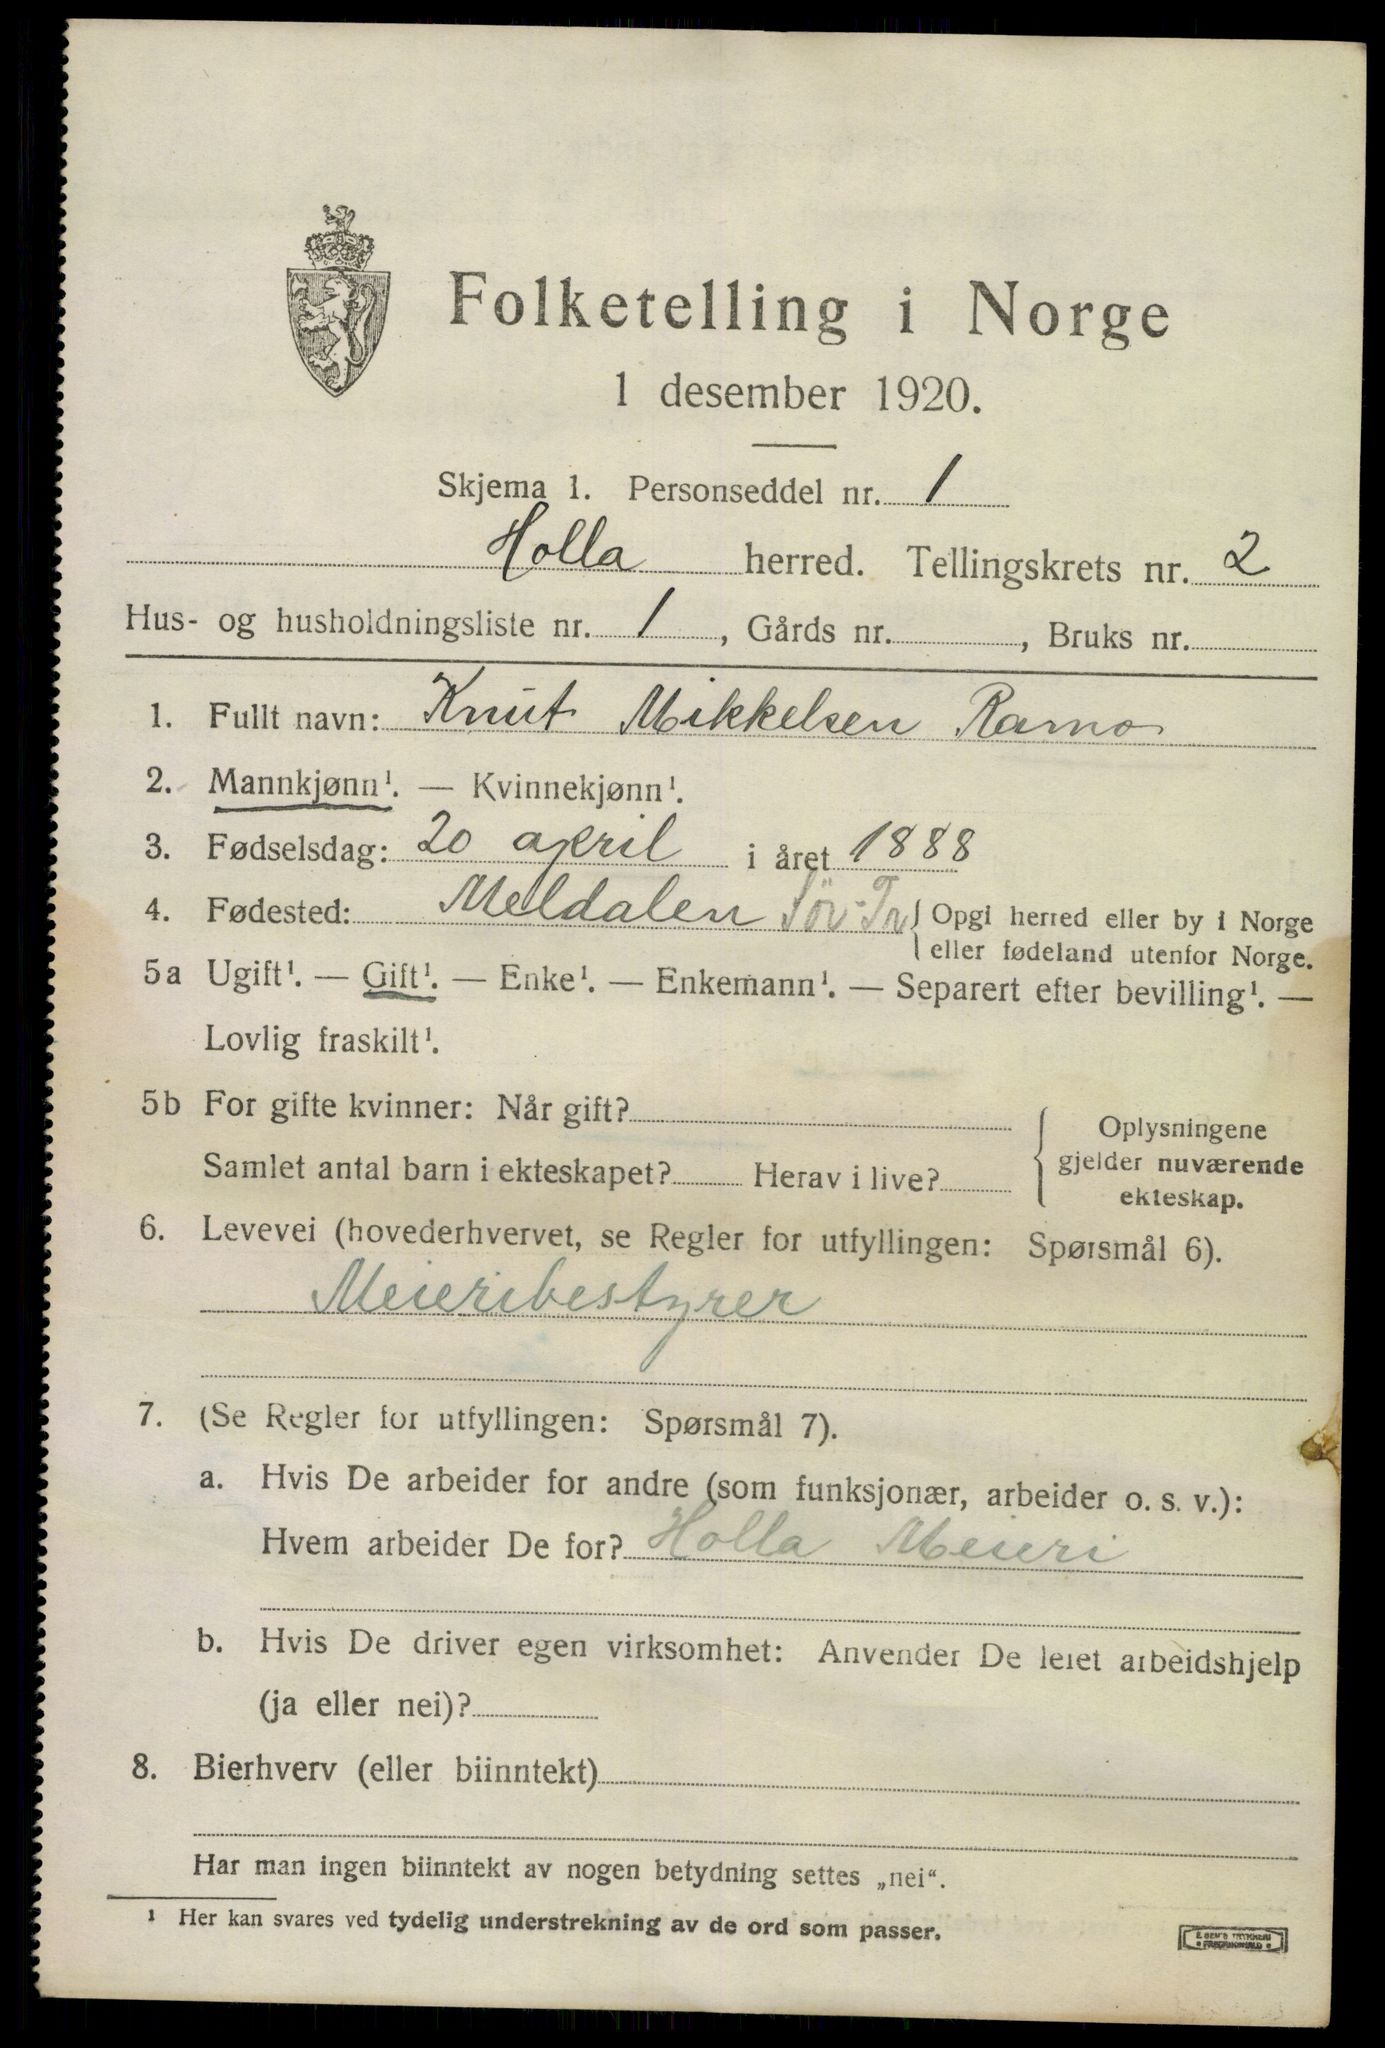 Folketelling i Norge
1 desember 1920.
Skjema 1. Personseddel nr. 1
Holla herred. Tellingskrets nr. 2
Hus- og husholdningsliste nr. 1, Gårds nr. , Bruks nr.
1. Fullt navn: Knut Mikkelsen Ramo
2. Mannkjønn¹. — Kvinnekjønn¹.
3. Fødselsdag: 20 april i året 1888
4. Fødested: Meldalen Sör-Tr { Opgi herred eller by i Norge
eller fødeland utenfor Norge.
5a Ugift¹. — Gift¹. — Enke¹. — Enkemann¹. — Separert efter bevilling¹. —
Lovlig fraskilt¹.
5b For gifte kvinner: Når gift?
Samlet antal barn i ekteskapet? Herav i live?
Oplysningene
gjelder nuværende
ekteskap.
6. Levevei (hovederhvervet, se Regler for utfyllingen: Spørsmål 6).
Meieribestyrer
7. (Se Regler for utfyllingen: Spørsmål 7).
a. Hvis De arbeider for andre (som funksjonær, arbeider o. s. v.):
Hvem arbeider De for? Holla Meieri
b. Hvis De driver egen virksomhet: Anvender De leiet arbeidshjelp
(ja eller nei)?
8. Bierhverv (eller biinntekt)
Har man ingen biinntekt av nogen betydning settes „nei“.
¹ Her kan svares ved tydelig understrekning av de ord som passer.